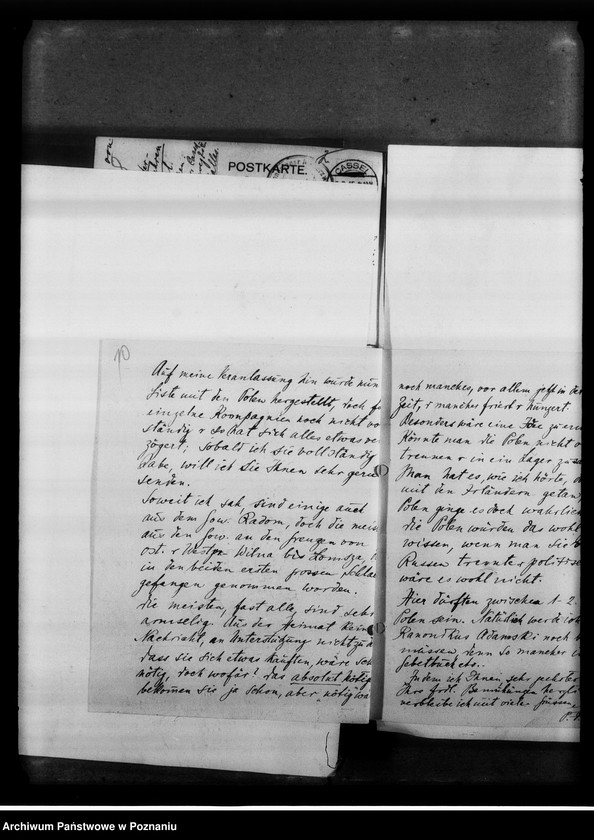 POSTKARTE.
CASSEL
10
Auf meine Veranlassung hin wurde nun
Liste mit den Polen hergestellt, doch
einzelne Kompagnien noch nicht vo
ständig & so hat sich alles etwas ve
zögert; sobald ich sie vollständig
habe, will ich sie Ihnen sehr gern
senden.
Soweit ich sah, sind einige auch
aus dem Gouv. Radom, doch die mei
aus den Gouv. an den Grenzen von
Ost. & Westpr. Wilna bis Lomza,
in den beiden ersten grossen Schla
gefangen genommen worden.
Die meisten, fast alle, sind sehr
armselig. Aus der Heimat kein
Nachricht, an Unterstützung nicht zu
dass sie sich etwas kauften, wäre
nötig, doch wofür! das absolut nötig
bekommen sie ja schon, aber nötig wä
noch manches, vor allem jetzt in der
Zeit, & mancher friert & hungert.
Besonders wäre eine
Könnte man die Polen nicht
trennen & in ein Lager
Man hat es, wie ich hörte,
mit den Irländern getan,
Polen ginge es doch wahrlich
die Polen würden das wohl
wissen, wenn man sie
Russen trennte; politisc
wäre es wohl nicht.
Hier dürften zwischen 1-2.
Polen sein. Natürlich werde ich
Kanonikus Adamski noch
müssen, denn so mancher
Gebetbuch
Indem ich Ihnen, sehr geehrter
Ihre frdl. Bemühungen herzli
verbleibe ich mit vielen Grüssen
Archiwum Państwowe w Poznaniu